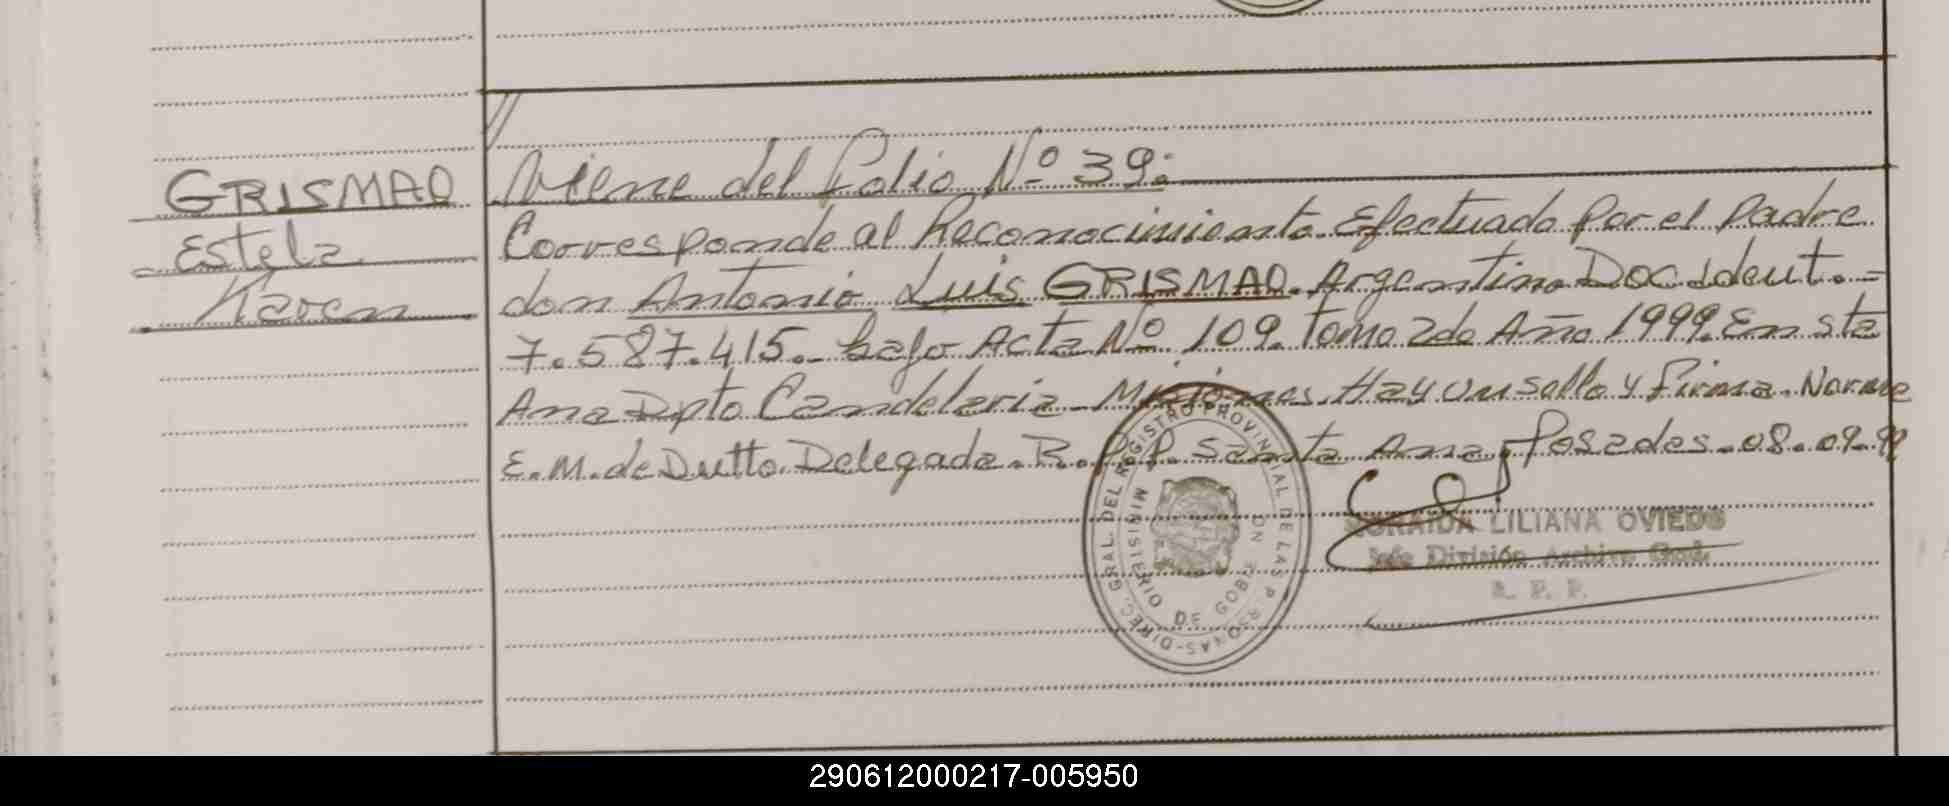 GRISMAO
Estela
Karen
Viene del Folio Nº 39:
Corresponde al Reconocimiento Efectuado por el Padre
don Antonio Luis GRISMAO. Argentino Doc Ident. -
7.587.415.- bajo Acta Nº 109. Tomo 2do Año 1999. En sta
Ana Dpto Candelaria - Misiones. Hay un sello y firma. Norma
E. M. de Dutto. Delegada. R. P. P. Santa Ana, Posadas. 08.09.99
DIREC. GRAL. DEL REGISTRO PROVINCIAL DE LAS PERSONAS-
MINISTERIO DE GOBIERNO
SORAIDA LILIANA OVIEDO
Jefe División Archivo Gral.
R. P. P.
290612000217-005950